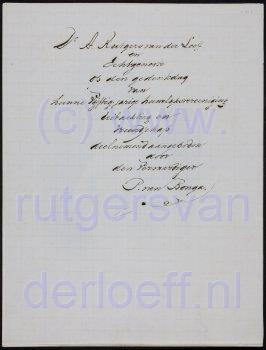 Dr A. Rutgers van der Loeff
en
Echtgenoote
op den gedenkdag
van
hunne Vijftigjarige huwelijksvereeniging
en
vriendschap
deelnemend aangeboden
door
den Vervaardiger
P. van
(c) www.
rutgersvan
derloeff.nl